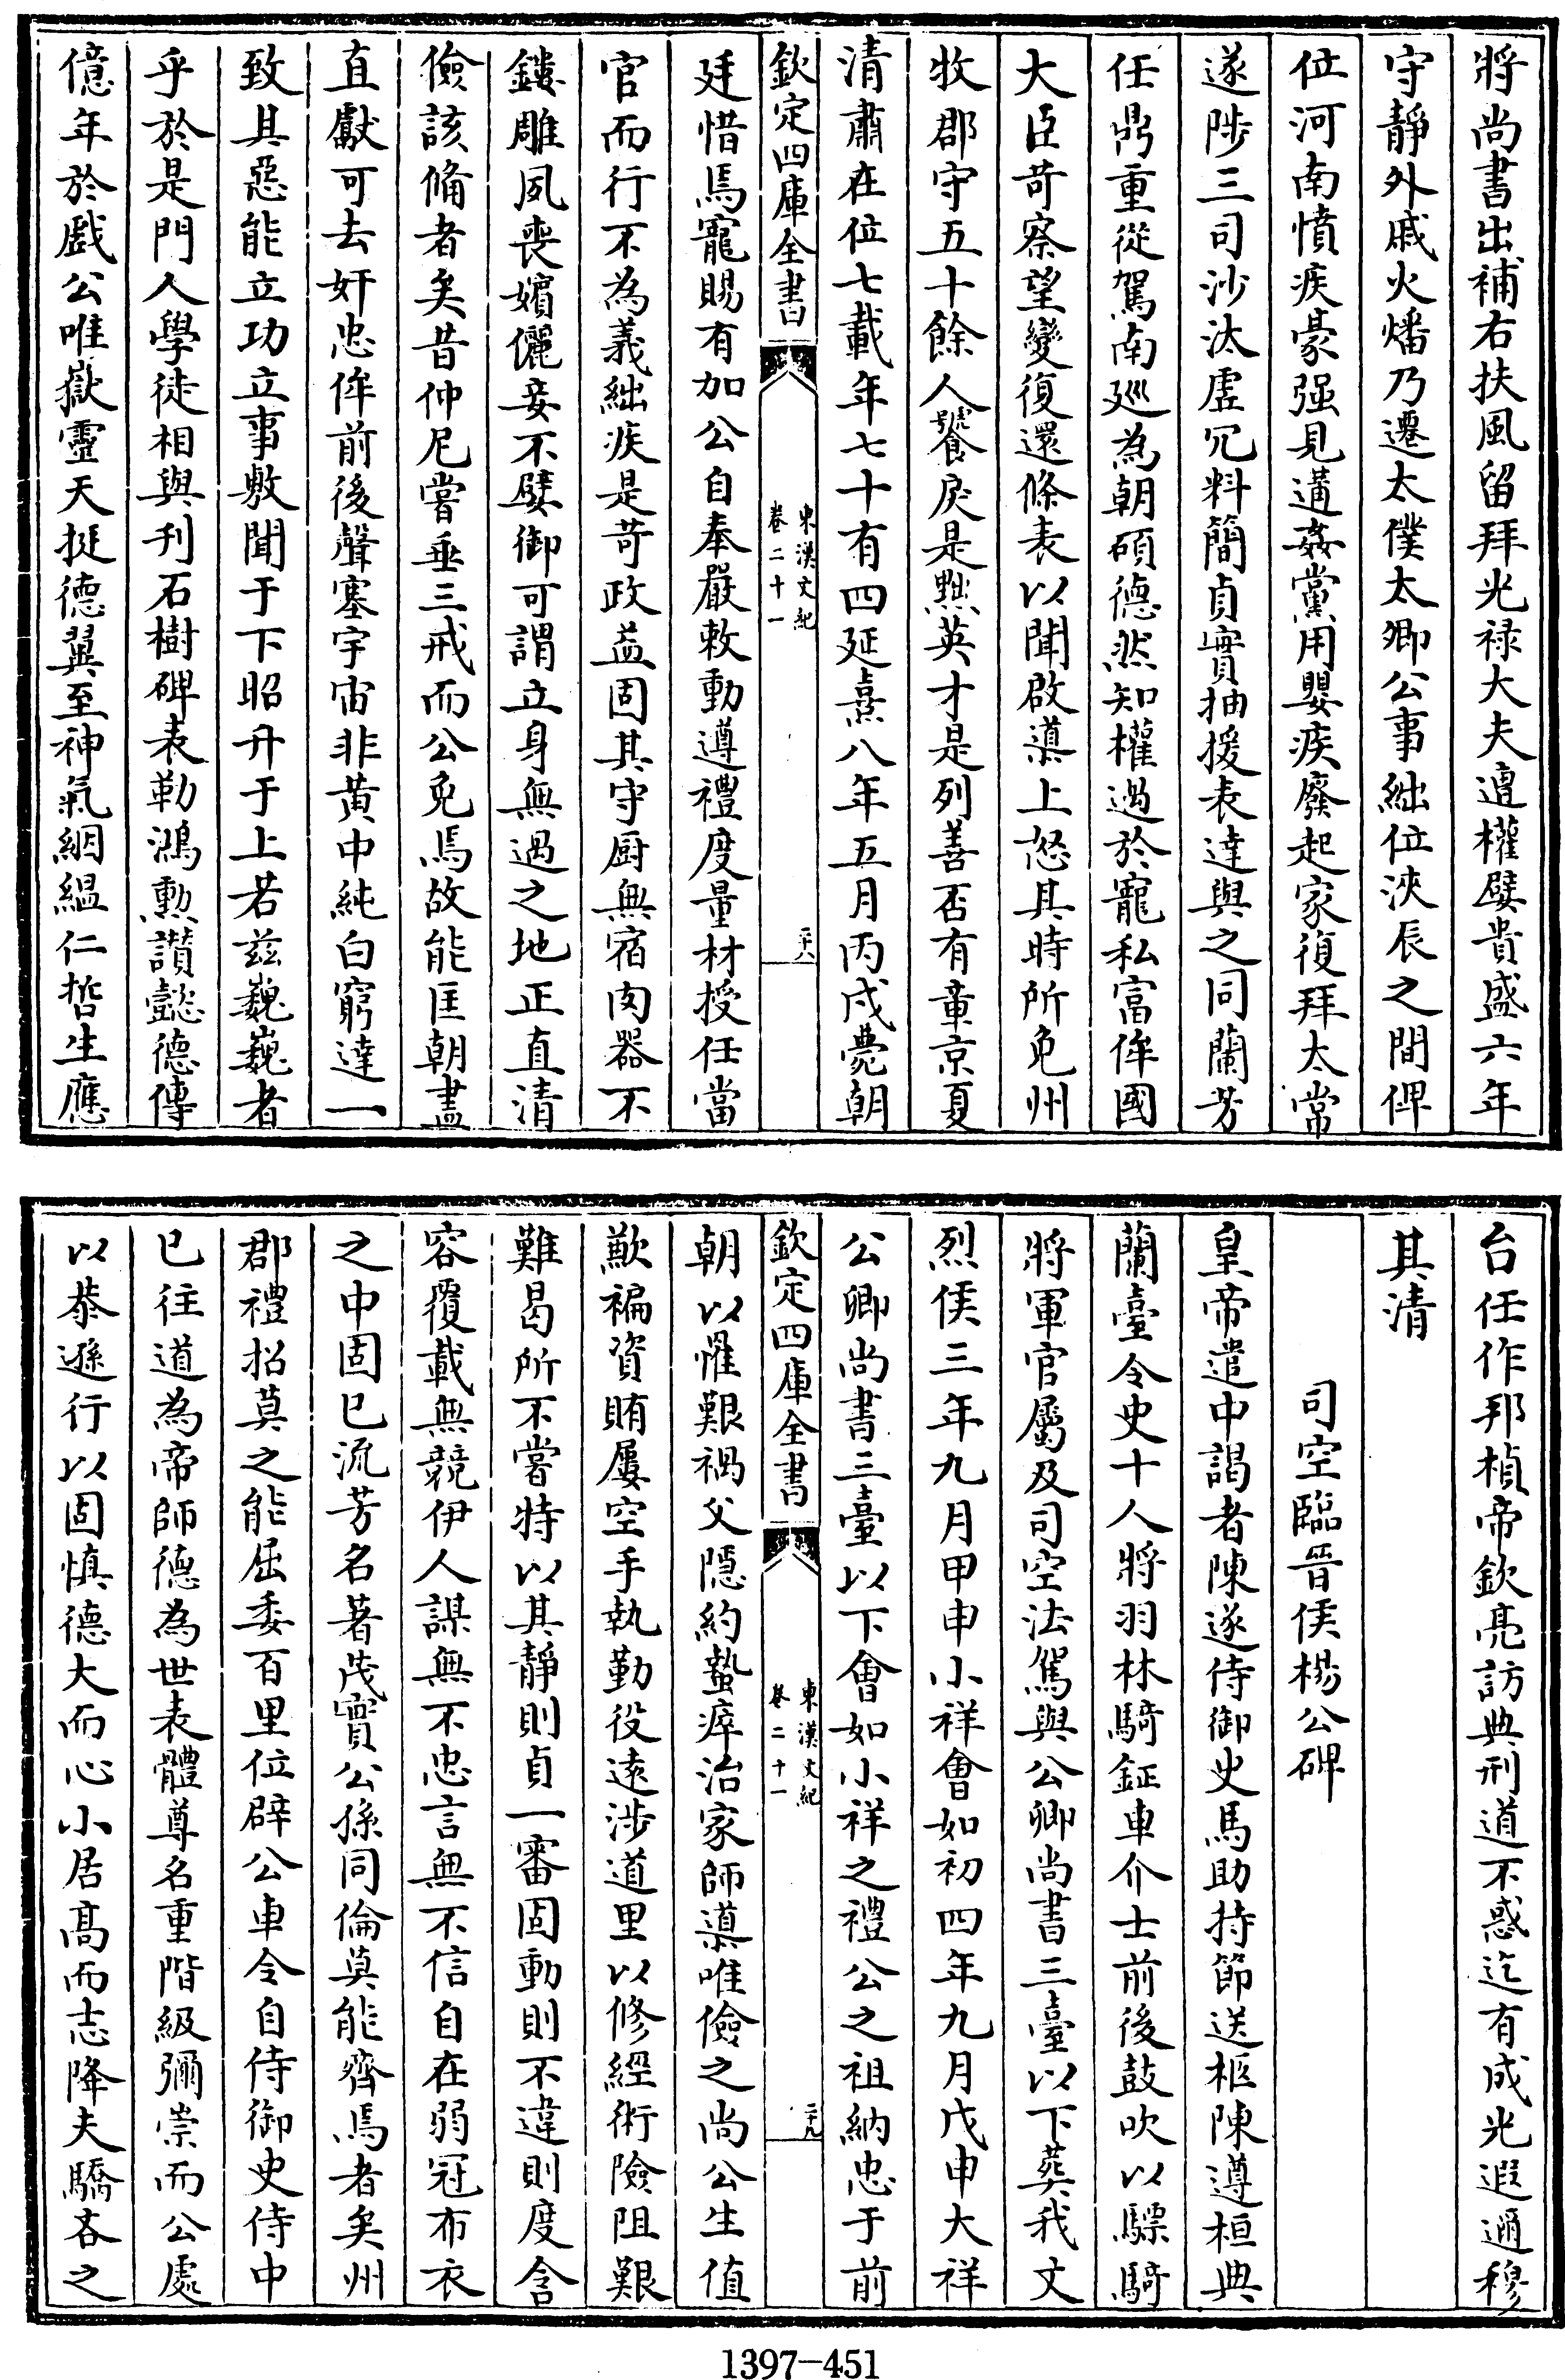 將尚書出補右扶風留拜光禄大夫遭權嬖貴盛六年
守靜外戚火燔乃遷太僕太卿公事絀位浹辰之間俾
位河南憤疾豪强見遘姦黨用嬰疾廢起家復拜太常
遂陟三司沙汰虚冗料簡貞實抽援表達與之同蘭芳
任鼎重從駕南廵為朝碩德然知權過於寵私富侔國
大臣苛察望變復還條表以聞啟𨗉上怒其時所免州
牧郡守五十餘人饕戾是黜英才是列善否有章京夏
清肅在位七載年七十有四延熹八年五月丙戌薨朝
欽定四庫全書
東漢文紀
卷二十一
二十八
廷惜焉寵賜有加公自奉嚴敕動遵禮度量材授任當
官而行不為義絀疾是苛政益固其守厨無宿肉器不
鏤雕夙喪嬪儷妾不嬖御可謂立身無過之地正直清
儉該備者矣昔仲尼嘗垂三戒而公免焉故能匡朝盡
直獻可去奸忠侔前後聲塞宇宙非黄中純白窮達一
致其惡能立功立事敷聞于下昭升于上若兹巍巍者
乎於是門人學徒相與刋石樹碑表勒鴻勲讚懿德傳
億年於戲公唯嶽靈天挺德翼至神氣絪緼仁哲生應
台任作邦楨帝欽亮訪典刑道不惑迄有成光遐邇穆
其清
司空臨晉侯楊公碑
皇帝遣中謁者陳遂侍御史馬助持節送柩陳遵桓典
蘭臺令史十人將羽林騎鉦車介士前後鼓吹以驃騎
將軍官屬及司空法駕與公卿尚書三臺以下葬我文
烈侯三年九月甲申小祥會如初四年九月戊申大祥
公卿尚書三臺以下會如小祥之禮公之祖納忠于前
欽定四庫全書
東漢文紀
卷二十一
二十九
朝以罹艱禍父隱約蟄瘁治家師導唯儉之尚公生值
歉褊資賄屢空手執勤役遠涉道里以修經術險阻艱
難曷所不嘗特以其靜則貞一審固動則不違則度含
容覆載無競伊人謀無不忠言無不信自在弱冠布衣
之中固已流芳名著茂實公孫同倫莫能齊焉者矣州
郡禮招莫之能屈委百里位辟公車令自侍御史侍中
已往道為帝師德為世表體尊名重階級彌崇而公處
以恭遜行以固慎德大而心小居髙而志降夫驕吝之
1397-451